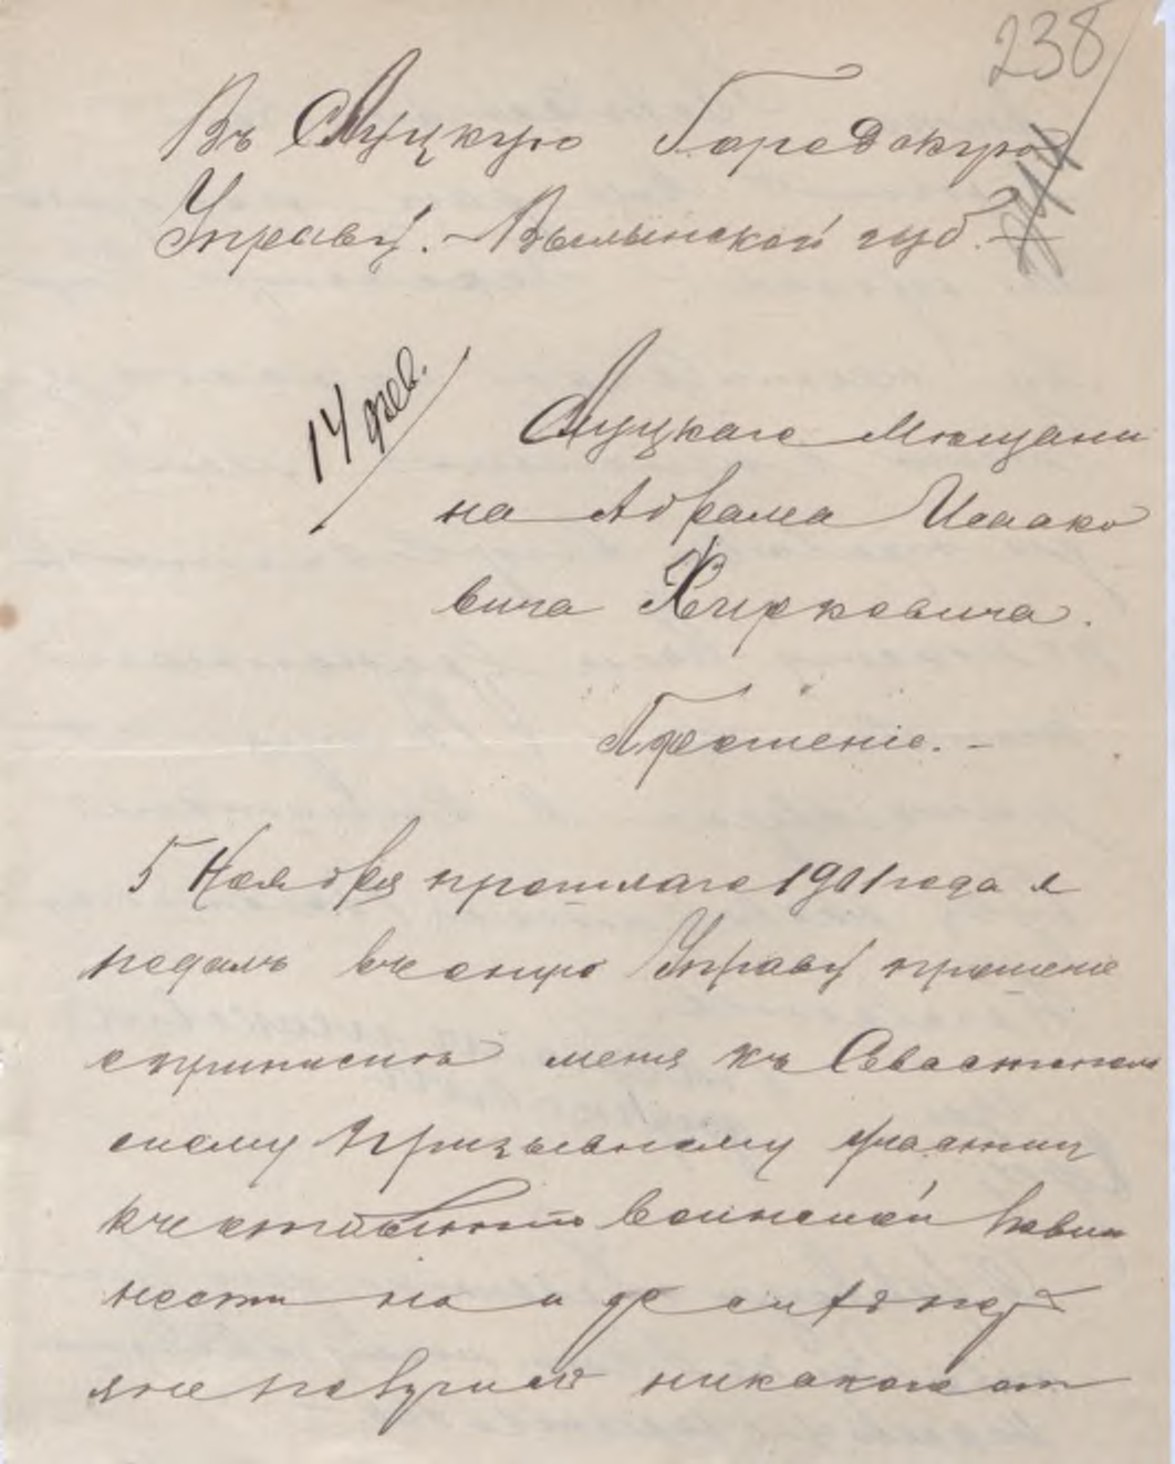 238
Въ Луцкую Городскую
Управу. - Волынской губ.
14 фев.
Луцкаго Мещани
на Абрама Исаако
вича Хирковича.
Прошеніе. -
5 Ноября прошлаго 1901 года я
подалъ въ оную Управу прошеніе
о приписки меня къ Севастополь
скому призывному участку
воинской повин
ности но и до сихъ поръ
я не получилъ никакого от